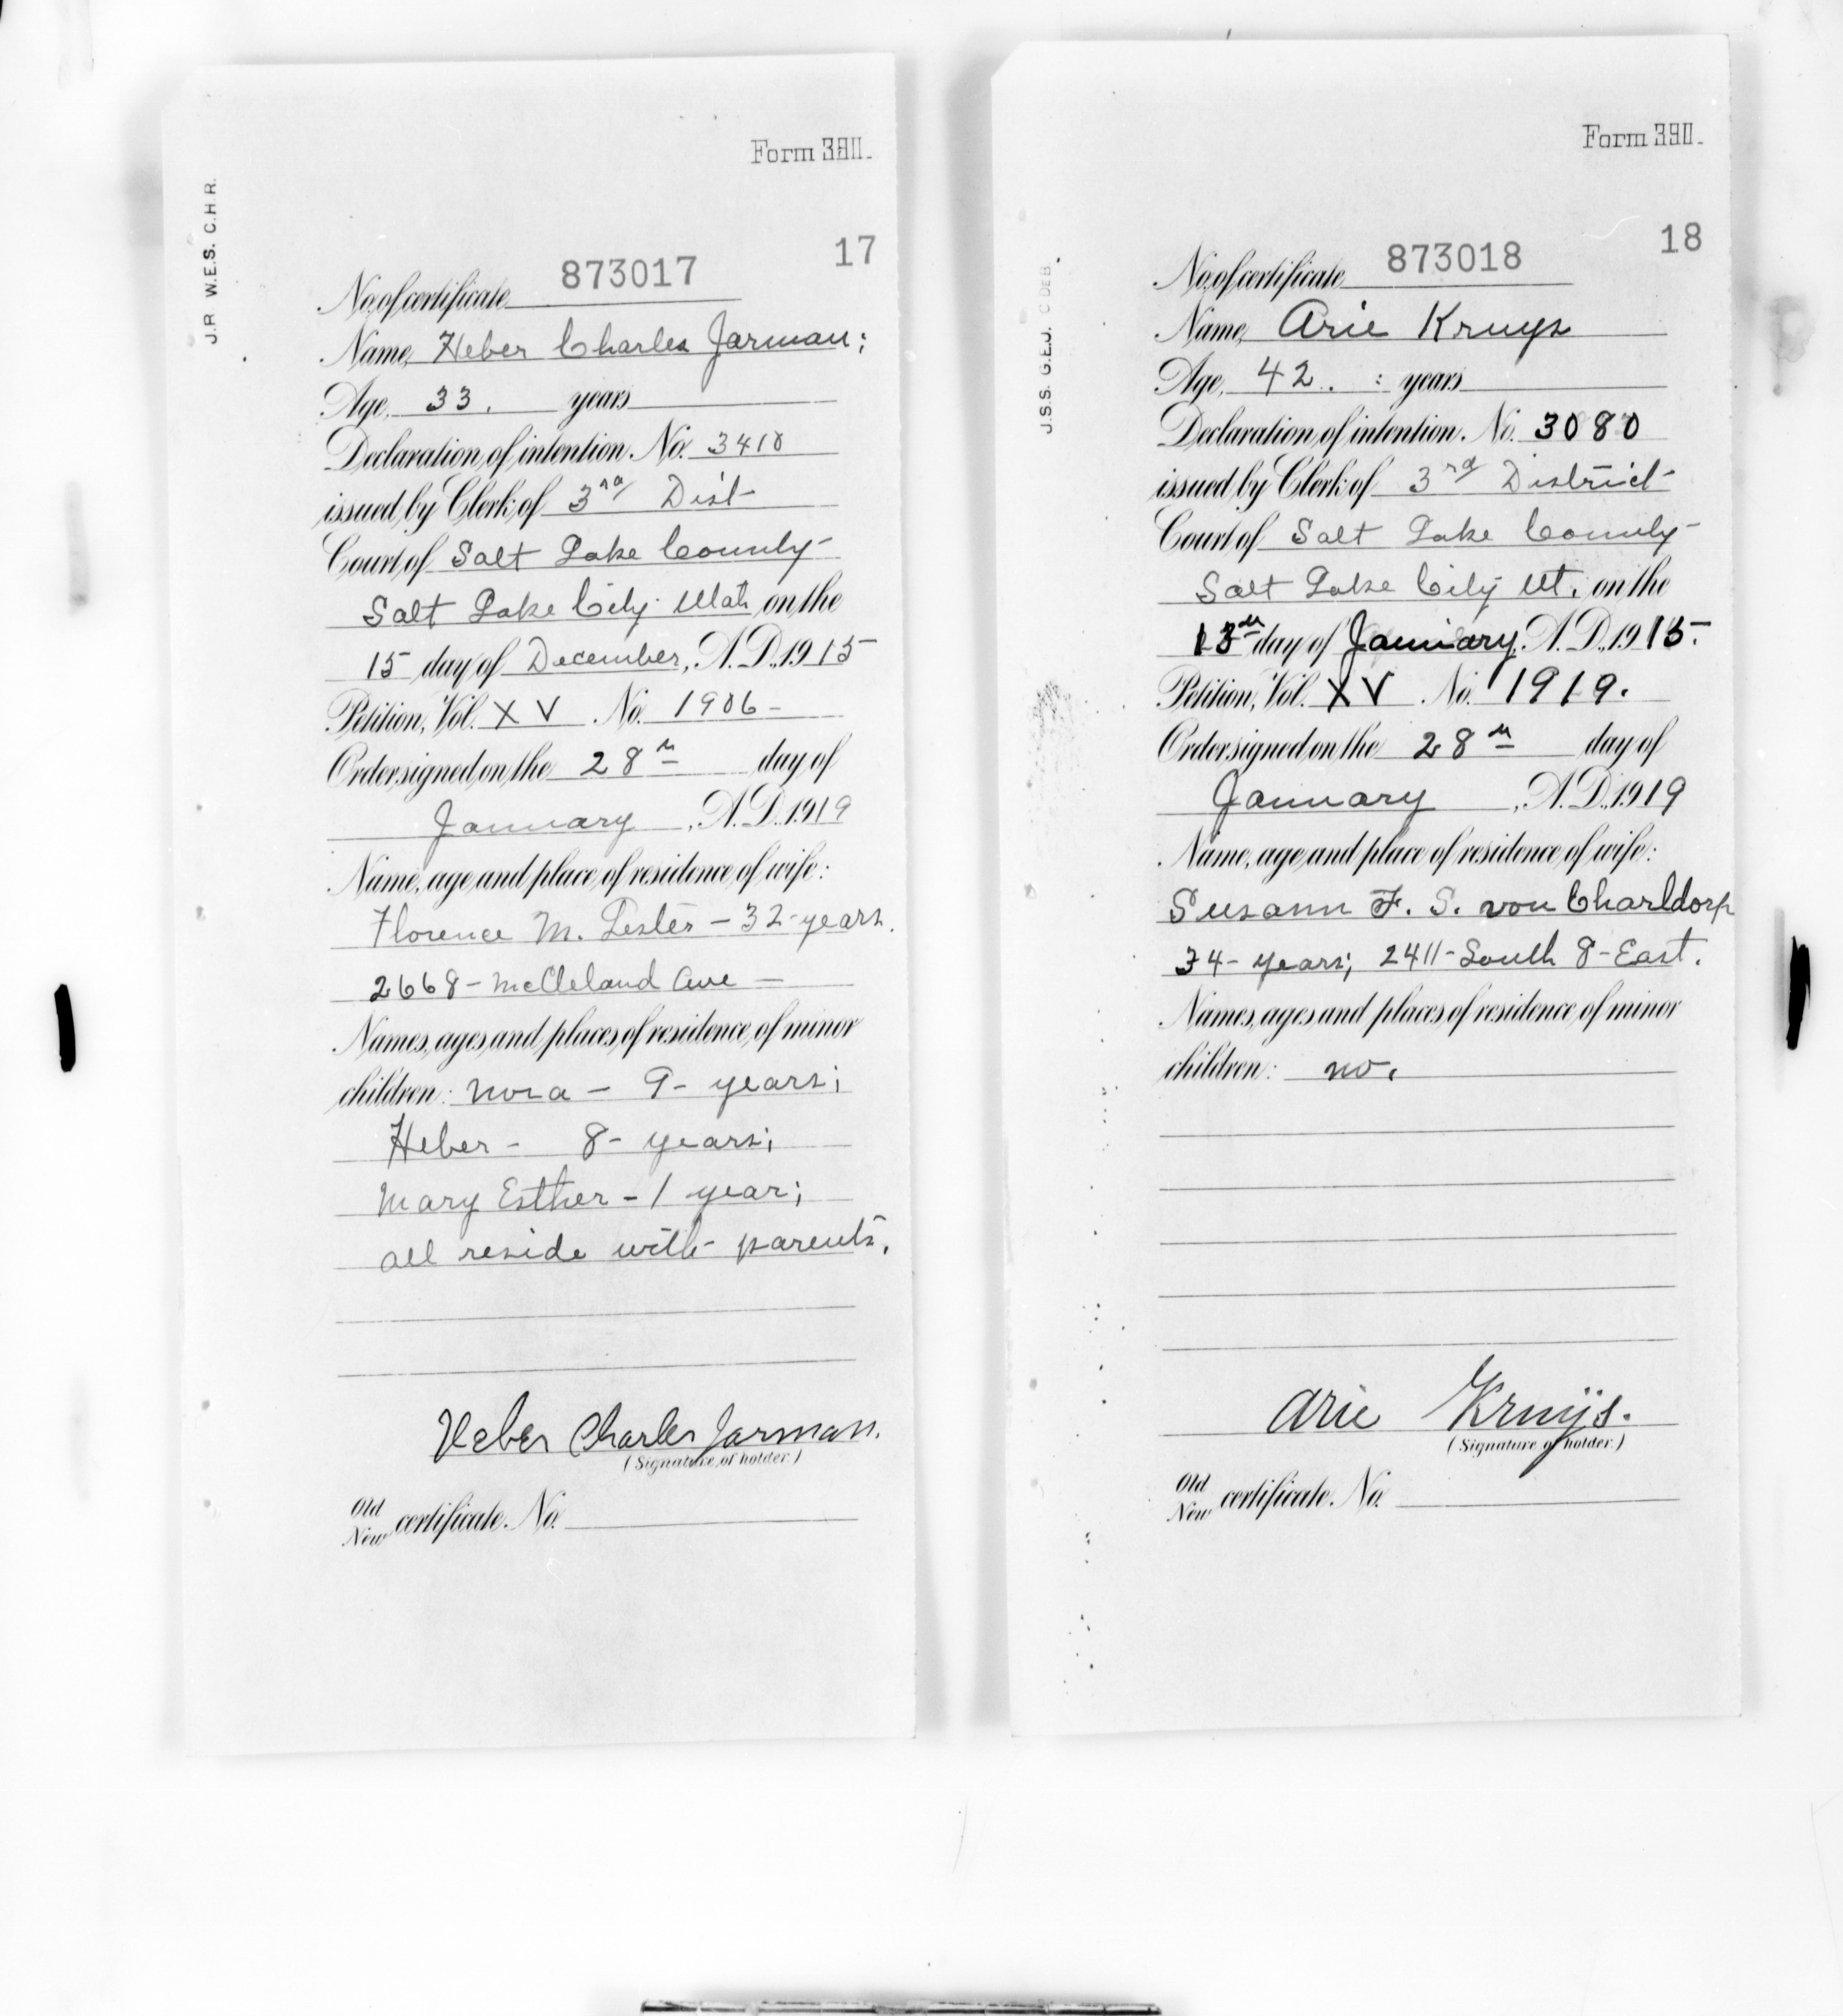 J.R. W.E.S. C.H.R.
Form 390.
17
No. of certificate 873017
Name, Heber Charles Jarman;
Age, 33. years
Declaration of intention. No. 3410
issued by Clerk of 3rd Dist
Court of Salt Lake County
Salt Lake City Utah on the
15 day of December, A.D. 1915
Petition, Vol. XV No. 1906
Order signed on the 28th day of
January, A.D. 1919
Name, age and place of residence of wife:
Florence M. Lester - 32 years.
2668 - McCleland Ave -
Names, ages and places of residence of minor
children: Nora - 9 - years;
Heber - 8 - years;
Mary Esther - 1 year;
all reside with parents.
Heber Charles Jarman.
(Signature of holder.)
Old
New certificate. No.
J.S.S. G.E.J. C DEB.
Form 390.
18
No. of certificate 873018
Name, Arie Kruys
Age, 42. : years
Declaration of intention. No. 3080
issued by Clerk of 3rd District
Court of Salt Lake County
Salt Lake City Ut. on the
13th day of January, A.D. 1915.
Petition, Vol. XV No. 1919.
Order signed on the 28th day of
January, A.D. 1919
Name, age and place of residence of wife:
Susann F. S. von Charldorp
34 - years; 2411 - South 8 - East.
Names, ages and places of residence of minor
children: no.
Arie Kruijs.
(Signature of holder.)
Old
New certificate. No.